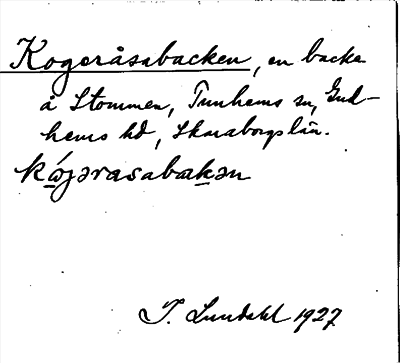 Kogeråsabacken, en backe
å Stommen, Tunhems sn, Gud-
hems hd, Skaraborgs län.
kájərasabakən
I. Lundahl 1927